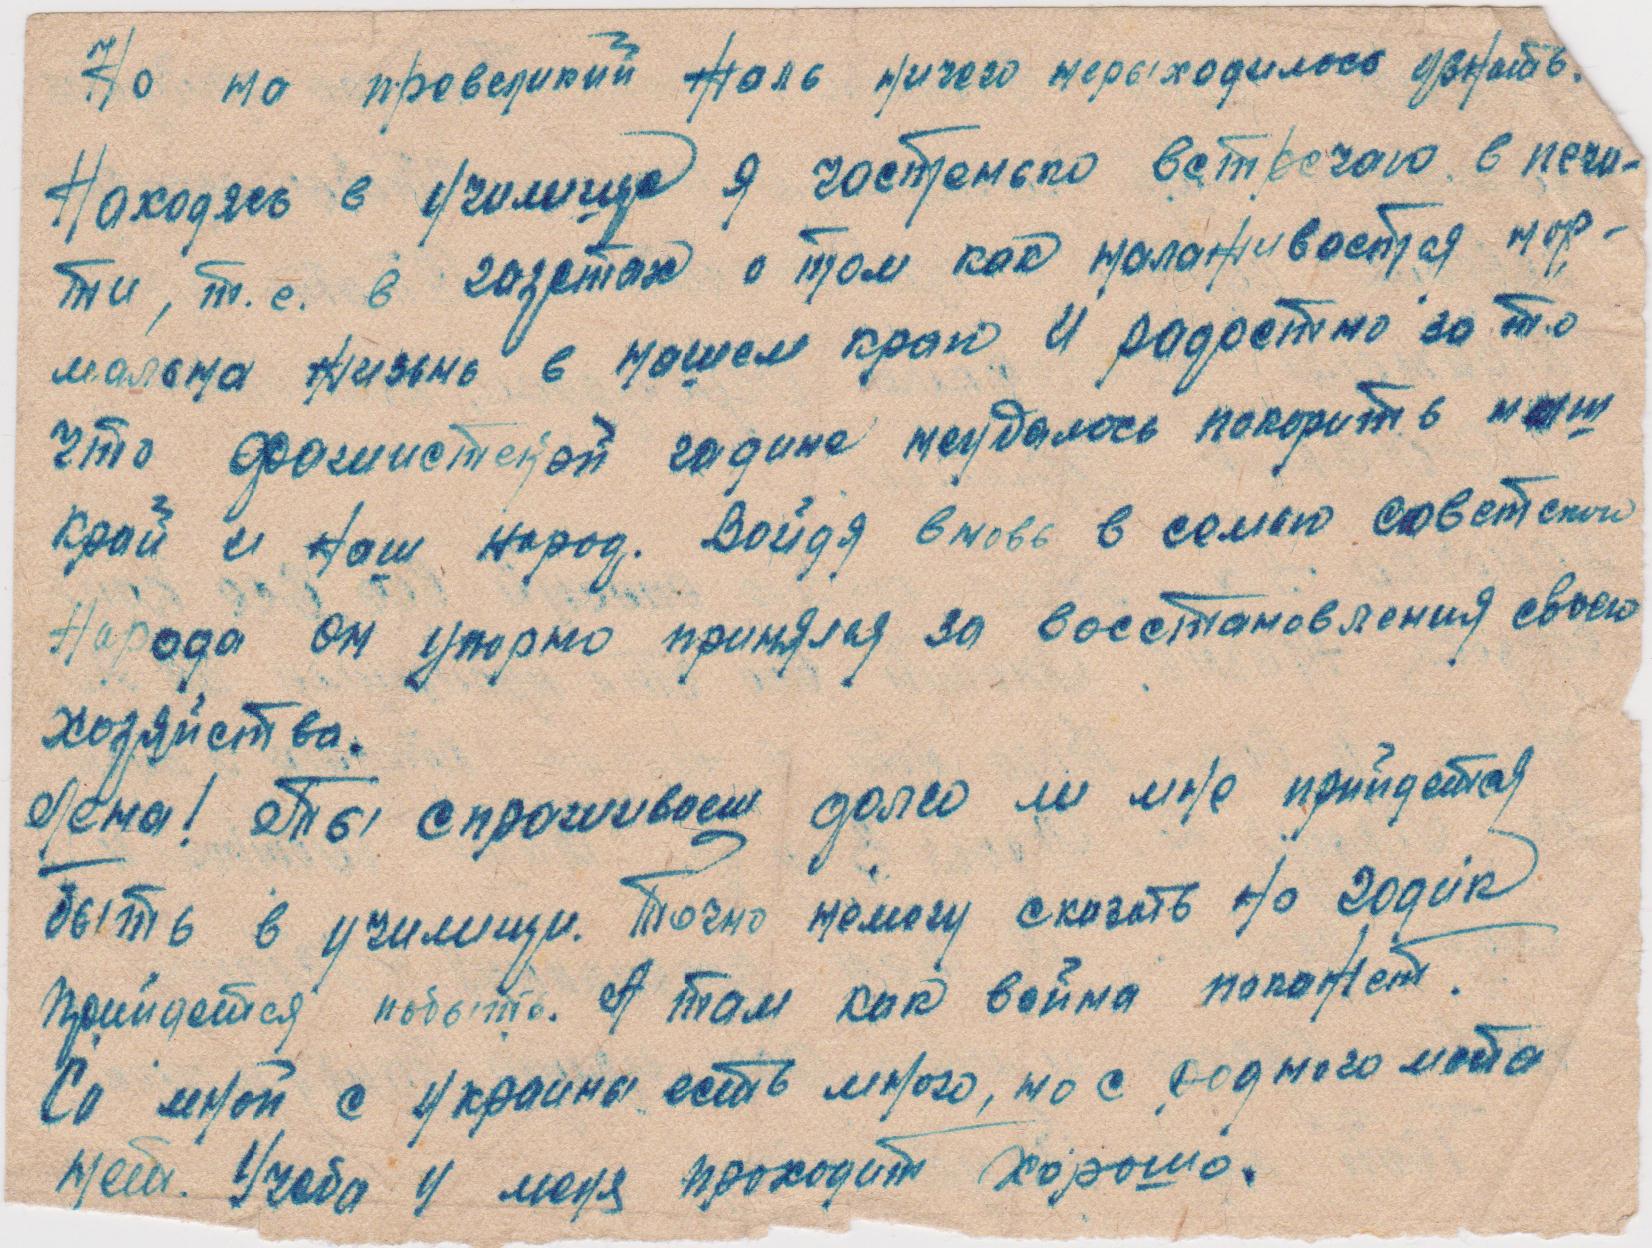 Но на превеликий жаль ничего невыходилось узнать.
Находясь в училище я частенько встречаю в печа-
ти, т.е. в газетах о том как налаживается нор-
мальна жизнь в нашем краю И радостно за то
что фашистской гадине неудалось покорить наш
край и наш народ. Войдя вновь в семью советского
Народа он упорно принялся за восстановления своего
хозяйства.
Лена! Ты спрашиваеш долго ли мне прийдется
быть в училищи. Точно немогу сказать но годик
прийдется побыть. А там как война покажет.
Со мной с украины есть много, но с родного места
нет. Учеба у меня проходит хорошо.